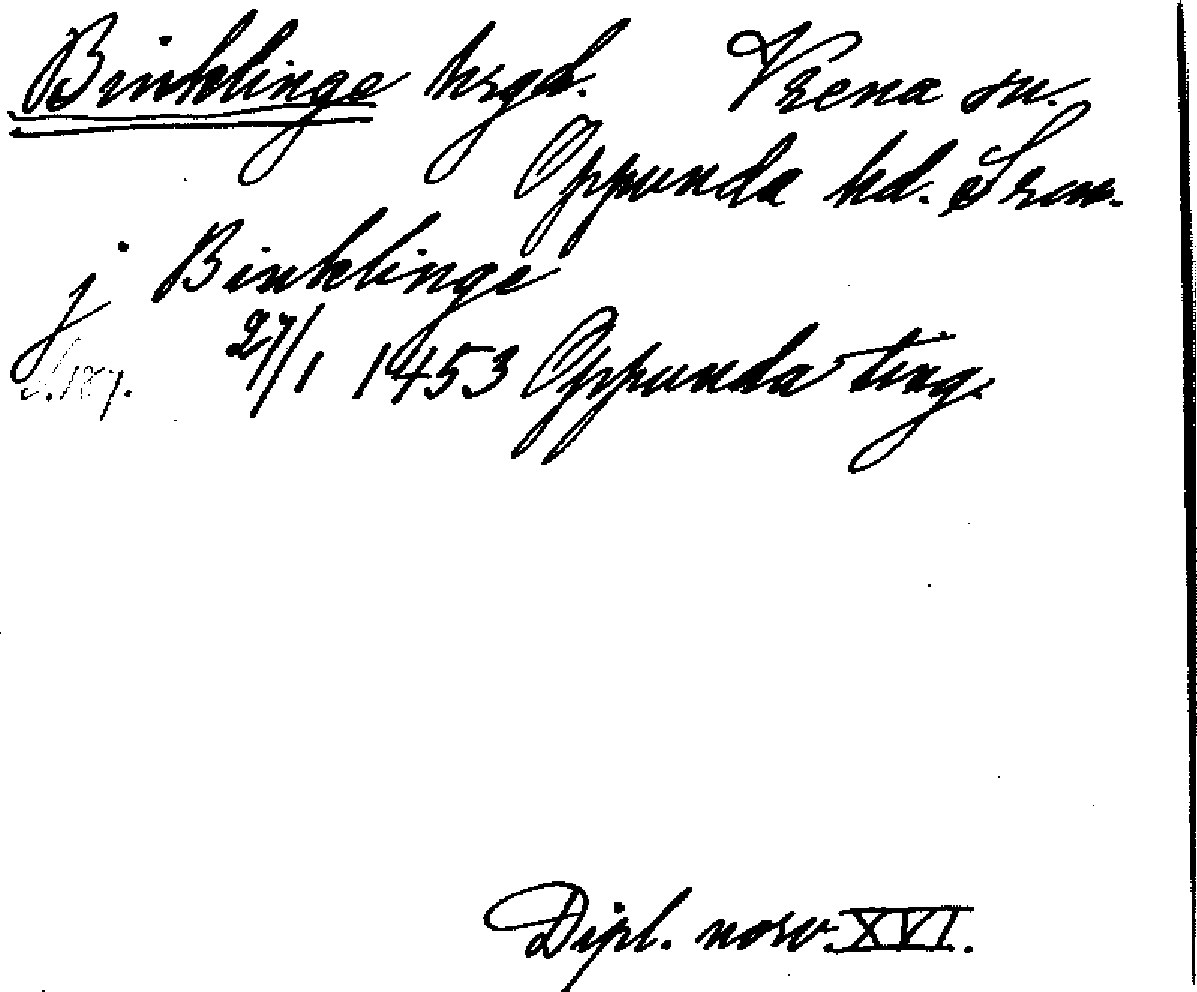 Binklinge hrgd. Vrena sn.
Oppunda hd. Srm.
j Binklinge
S. 187.
27/1 1453 Oppunda ting.
Dipl. norv. XVI.